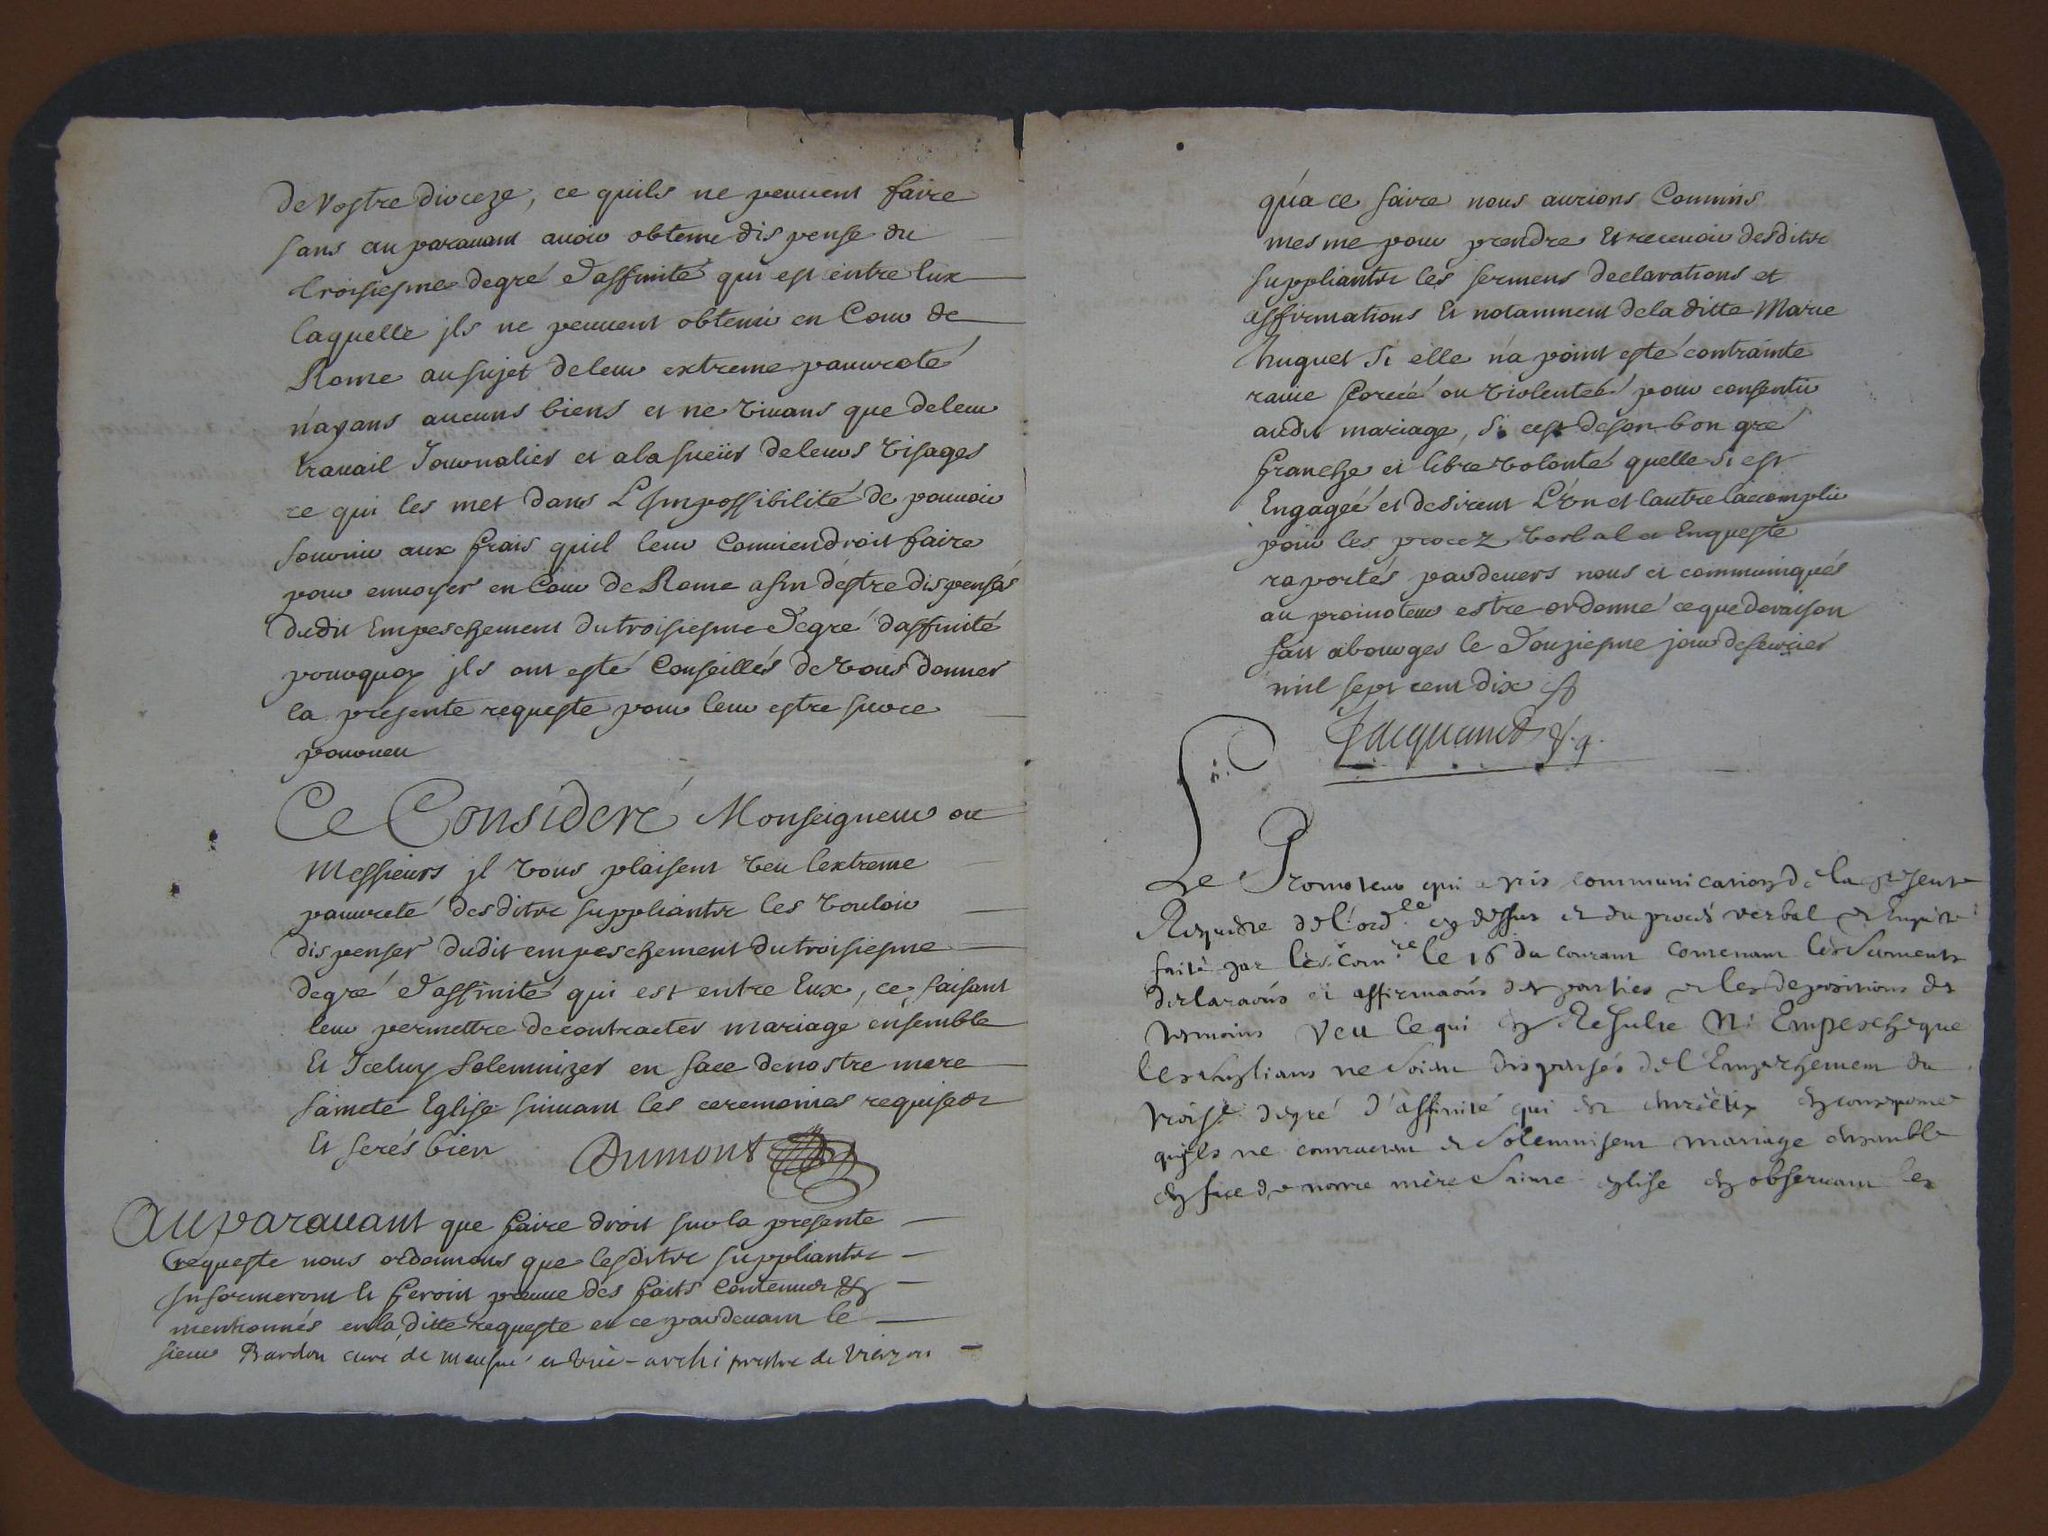 de vostre dioceze, ce quils ne peuuent faire
sans auparauant auoir obtenu dispense du
troisiesme degré d'affinité qui est entre Eux
laquelle jls ne peuuent obtenir en Cour de
Rome au sujet de leur extreme pauureté
n'ayans aucuns biens et ne viuans que de leur
trauail Journalier et a la sueür de leurs visages
ce qui les met dans L'Impossibilité de pouuoir
souuenir aux frais quil leur Conuiendroit faire
pour enuoyer en Cour de Rome afin d'estre dispensés
dudit Empeschement du troisiesme degré d'affinité
pourquoy jls ont esté Conseillés de vous donner
la presente requeste pour leur estre sur ce
pourueu
Ce Consideré Monseigneur ou
Messieurs jl vous plaisent veu lextreme
pauureté desdits suppliants les vouloir
dispenser dudit empeschement du troisiesme
degré d'affinité qui est entre Eux, ce, faisant
leur permettre de contracter mariage ensemble
Et Jceluy solemnizer en face de nostre mere
saincte Eglise suiuant les ceremonies requises
Et serés bien Dumont
Auparauant que faire droit sur la presente
requeste nous ordonnons que lesdits suppliants
Informeront et feront preuue des faits contenus &
mentionnés en la ditte requeste et ce pardeuant le
sieur Bardon curé de meusné et vice-archiprestre de vierzon
qu'a ce faire nous aurions Commis
mesme pour prendre Et receuoir desdits
suppliants les sermens declarations et
affirmations Et notamment de la ditte Marie
huguet si elle n'a point esté contrainte
rauie forcéé ou violentéé pour consentir
audit mariage, si cest de son bon gré
franche et libre volonté quelle si est
Engagéé et desirent L'vn et lautre laccomplir
pour les procez verbal et Enqueste
raportés pardeuers nous et communiqués
au promoteur estre ordonné ce que de raison
fait a bourges le douziesme jour de feurier
mil sept cent dix
Jacquemet v. g.
Le Promoteur qui a pris communication de la presente
Requeste de l'ord.le cy dessus et du procés verbal et Enqueste
faite par led. Com.re le 16 du courant contenant les serments
declaraons et affirmaons des parties et les depositions des
temoins Veu ce qui en Resulte N'Empesche que
les suplians ne soient dispensés de l'Empeschement du
trois.e degré d'affinité qui est entr'eux en consequence
quils ne contractent et solemnisent mariage ensemble
en face de nostre mère sainte eglise en obseruant les